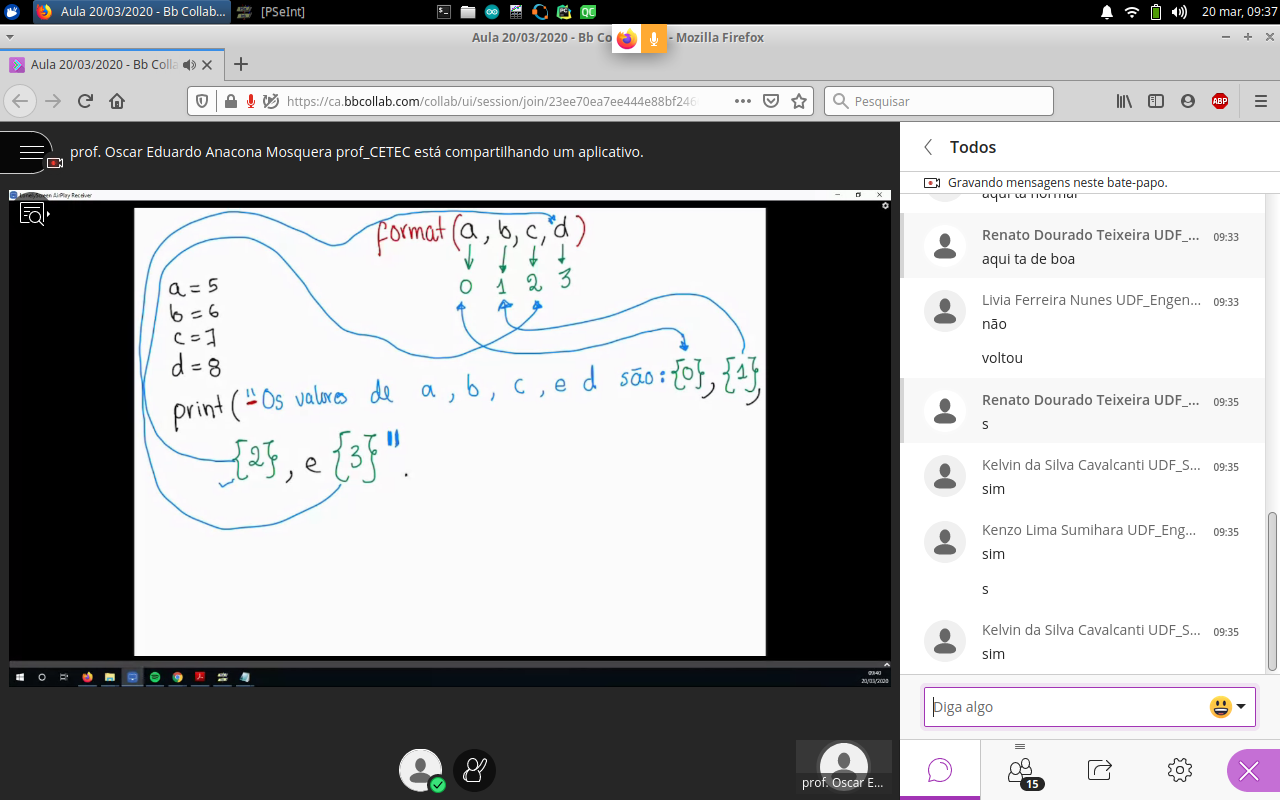 Aula 20/03/2020 - Bb Collab...
[PSeInt]
20 mar, 09:37
Aula 20/03/2020 - Bb Co
- Mozilla Firefox
Aula 20/03/2020 - Bb Colla
https://ca.bbcollab.com/collab/ui/session/join/23ee70ea7ee444e88bf246
Pesquisar
ABP
prof. Oscar Eduardo Anacona Mosquera prof_CETEC está compartilhando um aplicativo.
format(a, b, c, d)
0 1 2 3
a = 5
b = 6
c = 7
d = 8
print("Os valores de a, b, c, e d são: {0}, {1},
{2}, e {3}".
09:40
20/03/2020
prof. Oscar E...
Todos
Gravando mensagens neste bate-papo.
aqui ta normal
Renato Dourado Teixeira UDF_... 09:33
aqui ta de boa
Livia Ferreira Nunes UDF_Engen... 09:33
não
voltou
Renato Dourado Teixeira UDF_... 09:35
s
Kelvin da Silva Cavalcanti UDF_S... 09:35
sim
Kenzo Lima Sumihara UDF_Eng... 09:35
sim
s
Kelvin da Silva Cavalcanti UDF_S... 09:35
sim
Diga algo
15